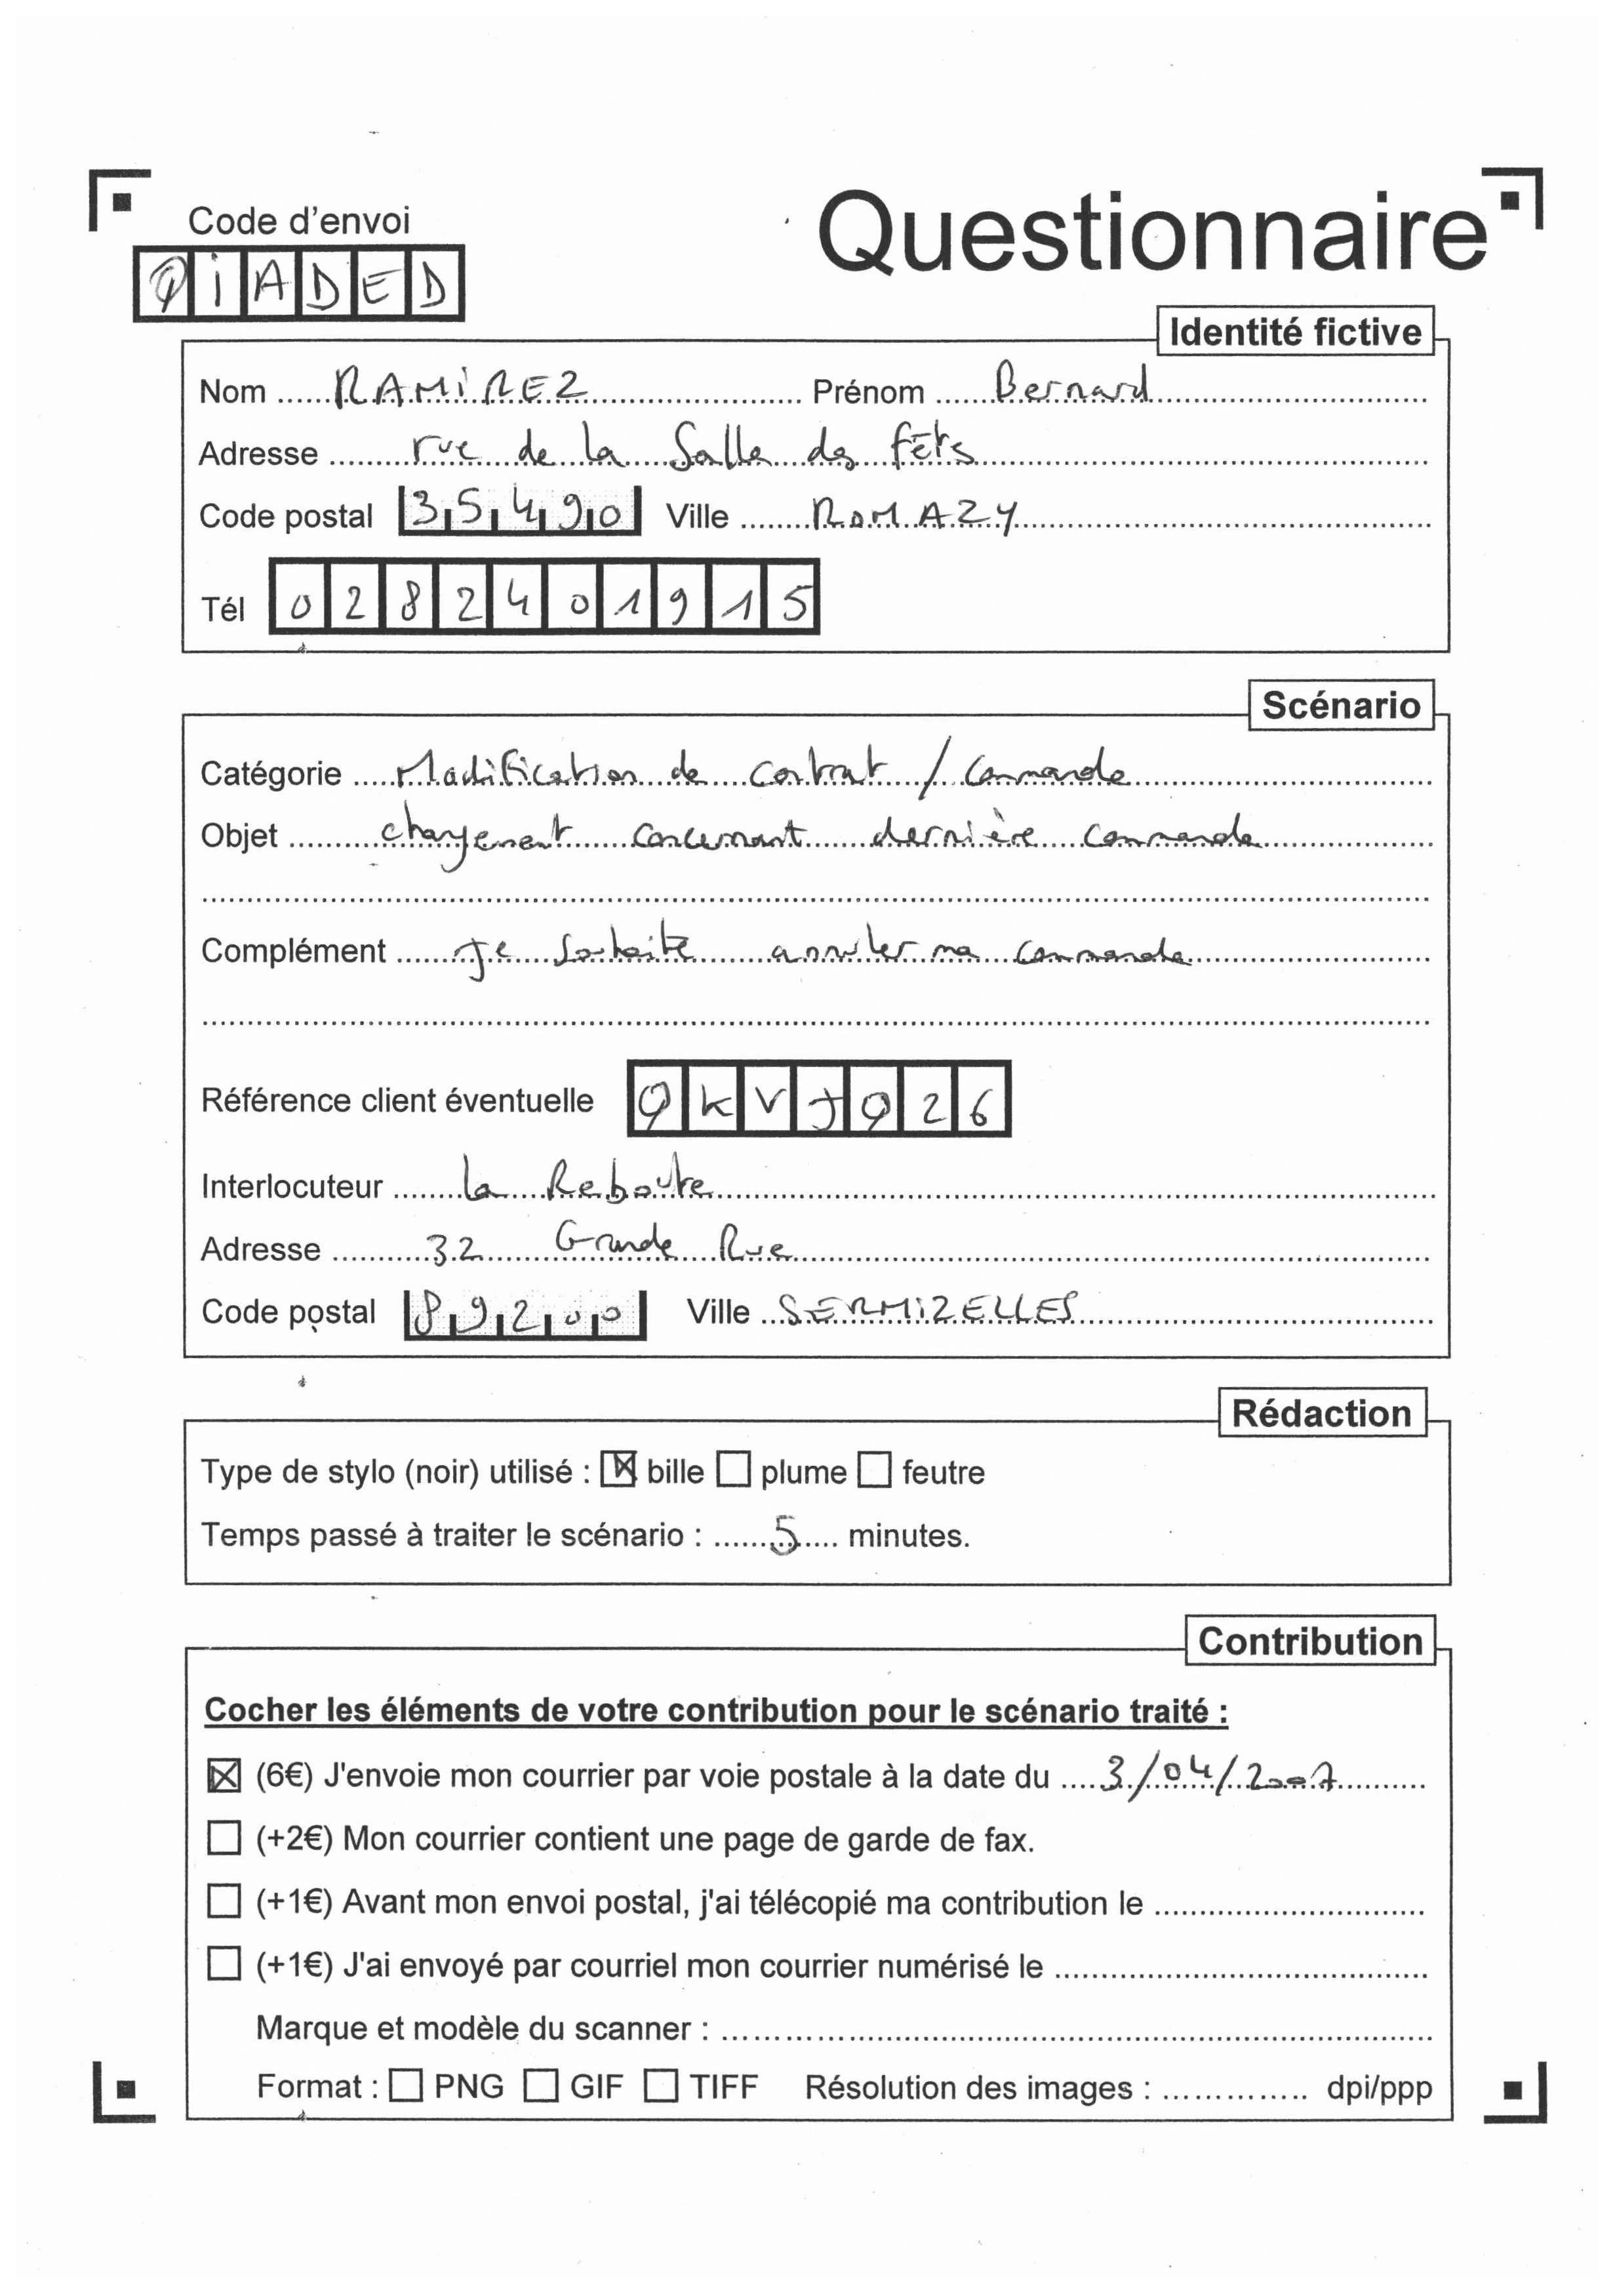 Code d'envoi
Questionnaire
QIADED
Identité fictive
Nom RAMIREZ Prénom Bernard
Adresse rue de la Salle des fêtes
Code postal 35490 Ville ROMAZY
Tél 0282401915
Scénario
Catégorie Modification de contrat / Commande
Objet changement concernant dernière commande
Complément Je souhaite annuler ma commande
Référence client éventuelle QKVJQ26
Interlocuteur la Reboute
Adresse 32 Grande Rue
Code postal 89200 Ville SERMIZELLES
Rédaction
Type de stylo (noir) utilisé : ☒ bille ☐ plume ☐ feutre
Temps passé à traiter le scénario : 5 minutes.
Contribution
Cocher les éléments de votre contribution pour le scénario traité :
☒ (6€) J'envoie mon courrier par voie postale à la date du 3/04/2007
☐ (+2€) Mon courrier contient une page de garde de fax.
☐ (+1€) Avant mon envoi postal, j'ai télécopié ma contribution le
☐ (+1€) J'ai envoyé par courriel mon courrier numérisé le
Marque et modèle du scanner :
Format : ☐ PNG ☐ GIF ☐ TIFF Résolution des images : dpi/ppp